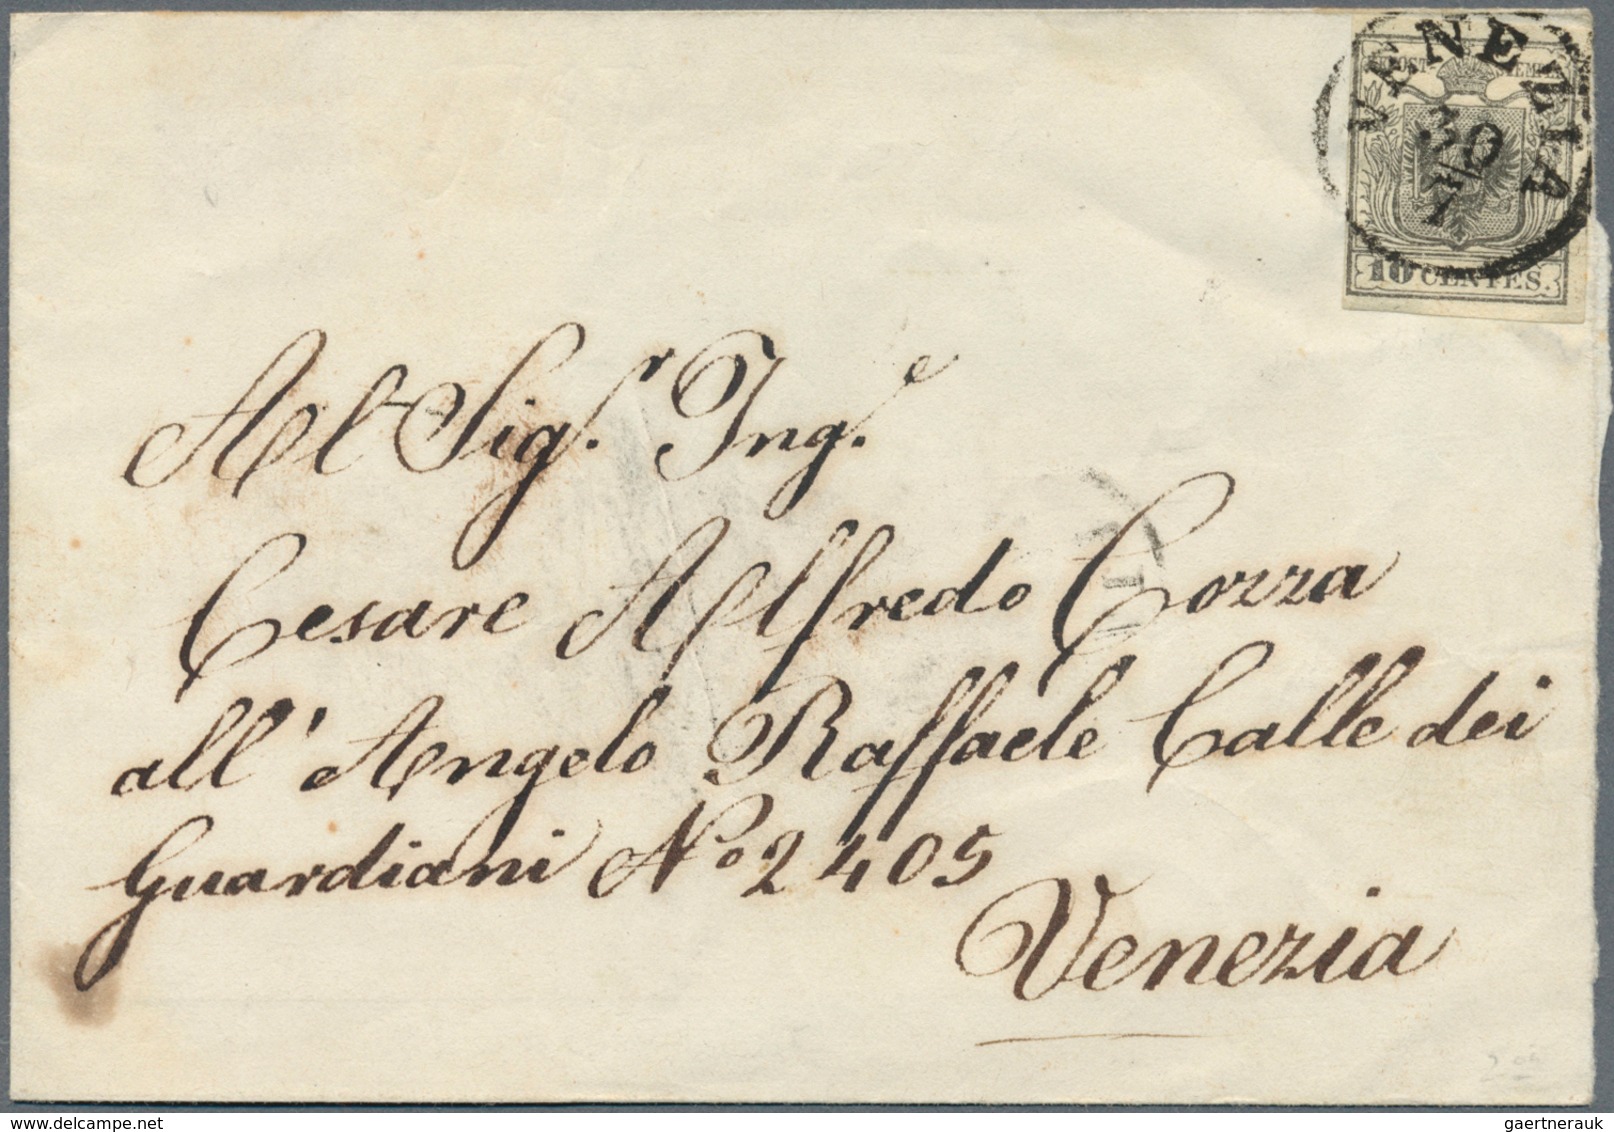 VENEZIA
30
10 CENTES.
Al Sigr. Inge.
Cesare Alfredo Cozza
all' Angelo Raffaele Calle dei
Guardiani No 2405
Venezia
gaertnerauk